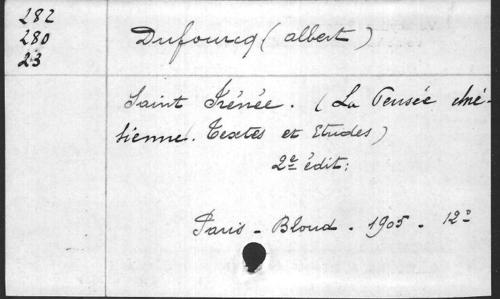 282
280
23
Dufourcq (Albert)
Saint Irénée. (La Pensée chré-
tienne. Textes et Etudes)
2e édit:
Paris - Bloud - 1905 - 12°